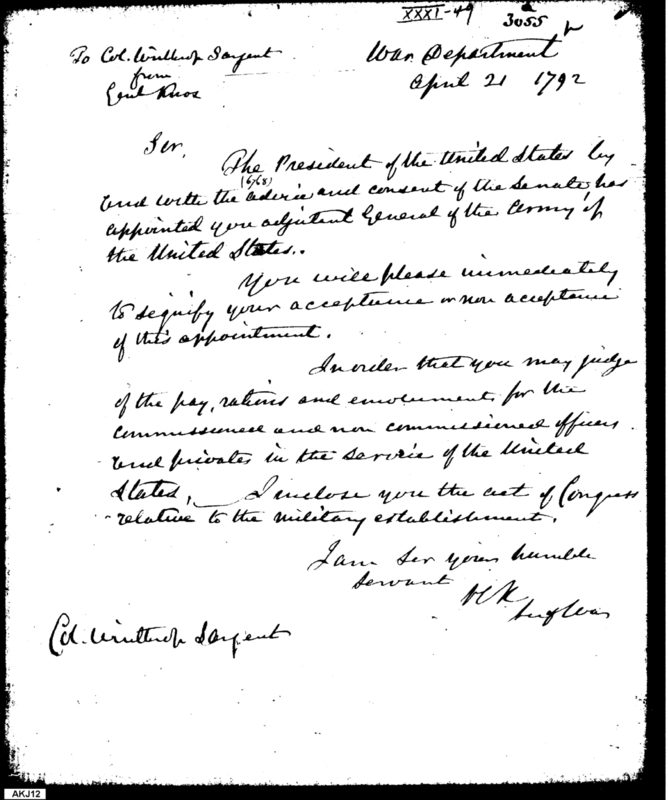 XXXI-49
3055
To Col. Winthrop Sargent
from
Genl Knox
War Department
April 21 1792
Sir,
The President of the United States by
(6/68)
and with the advice and consent of the Senate, has
appointed you adjutant General of the Army of
the United States..
You will please immediately
to signify your acceptance or non acceptance
of this appointment.
In order that you may judge
of the pay, rations and emolument, for the
commissioned and non commissioned officers
and privates in the service of the United
States, I inclose you the act of Congress
relative to the military establishment.
I am Sir your humble
Servant
HK
Secy War
Col. Winthrop Sargent
AKJ12